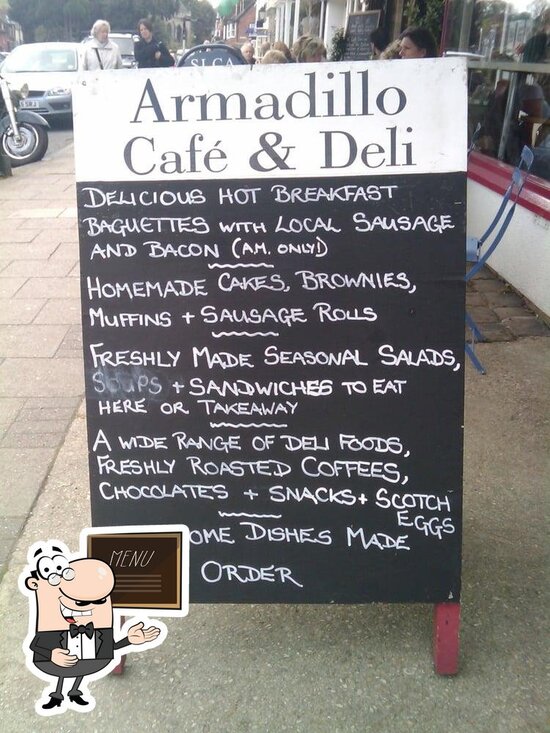 SLCA
Armadillo
Café & Deli
DELICIOUS HOT BREAKFAST
BAGUETTES WITH LOCAL SAUSAGE
AND BACON (A.M. ONLY!)
HOMEMADE CAKES, BROWNIES,
MUFFINS + SAUSAGE ROLLS
FRESHLY MADE SEASONAL SALADS,
SOUPS + SANDWICHES TO EAT
HERE OR TAKEAWAY
A WIDE RANGE OF DELI FOODS,
FRESHLY ROASTED COFFEES,
CHOCOLATES + SNACKS + SCOTCH
EGGS
OME DISHES MADE
ORDER
MENU